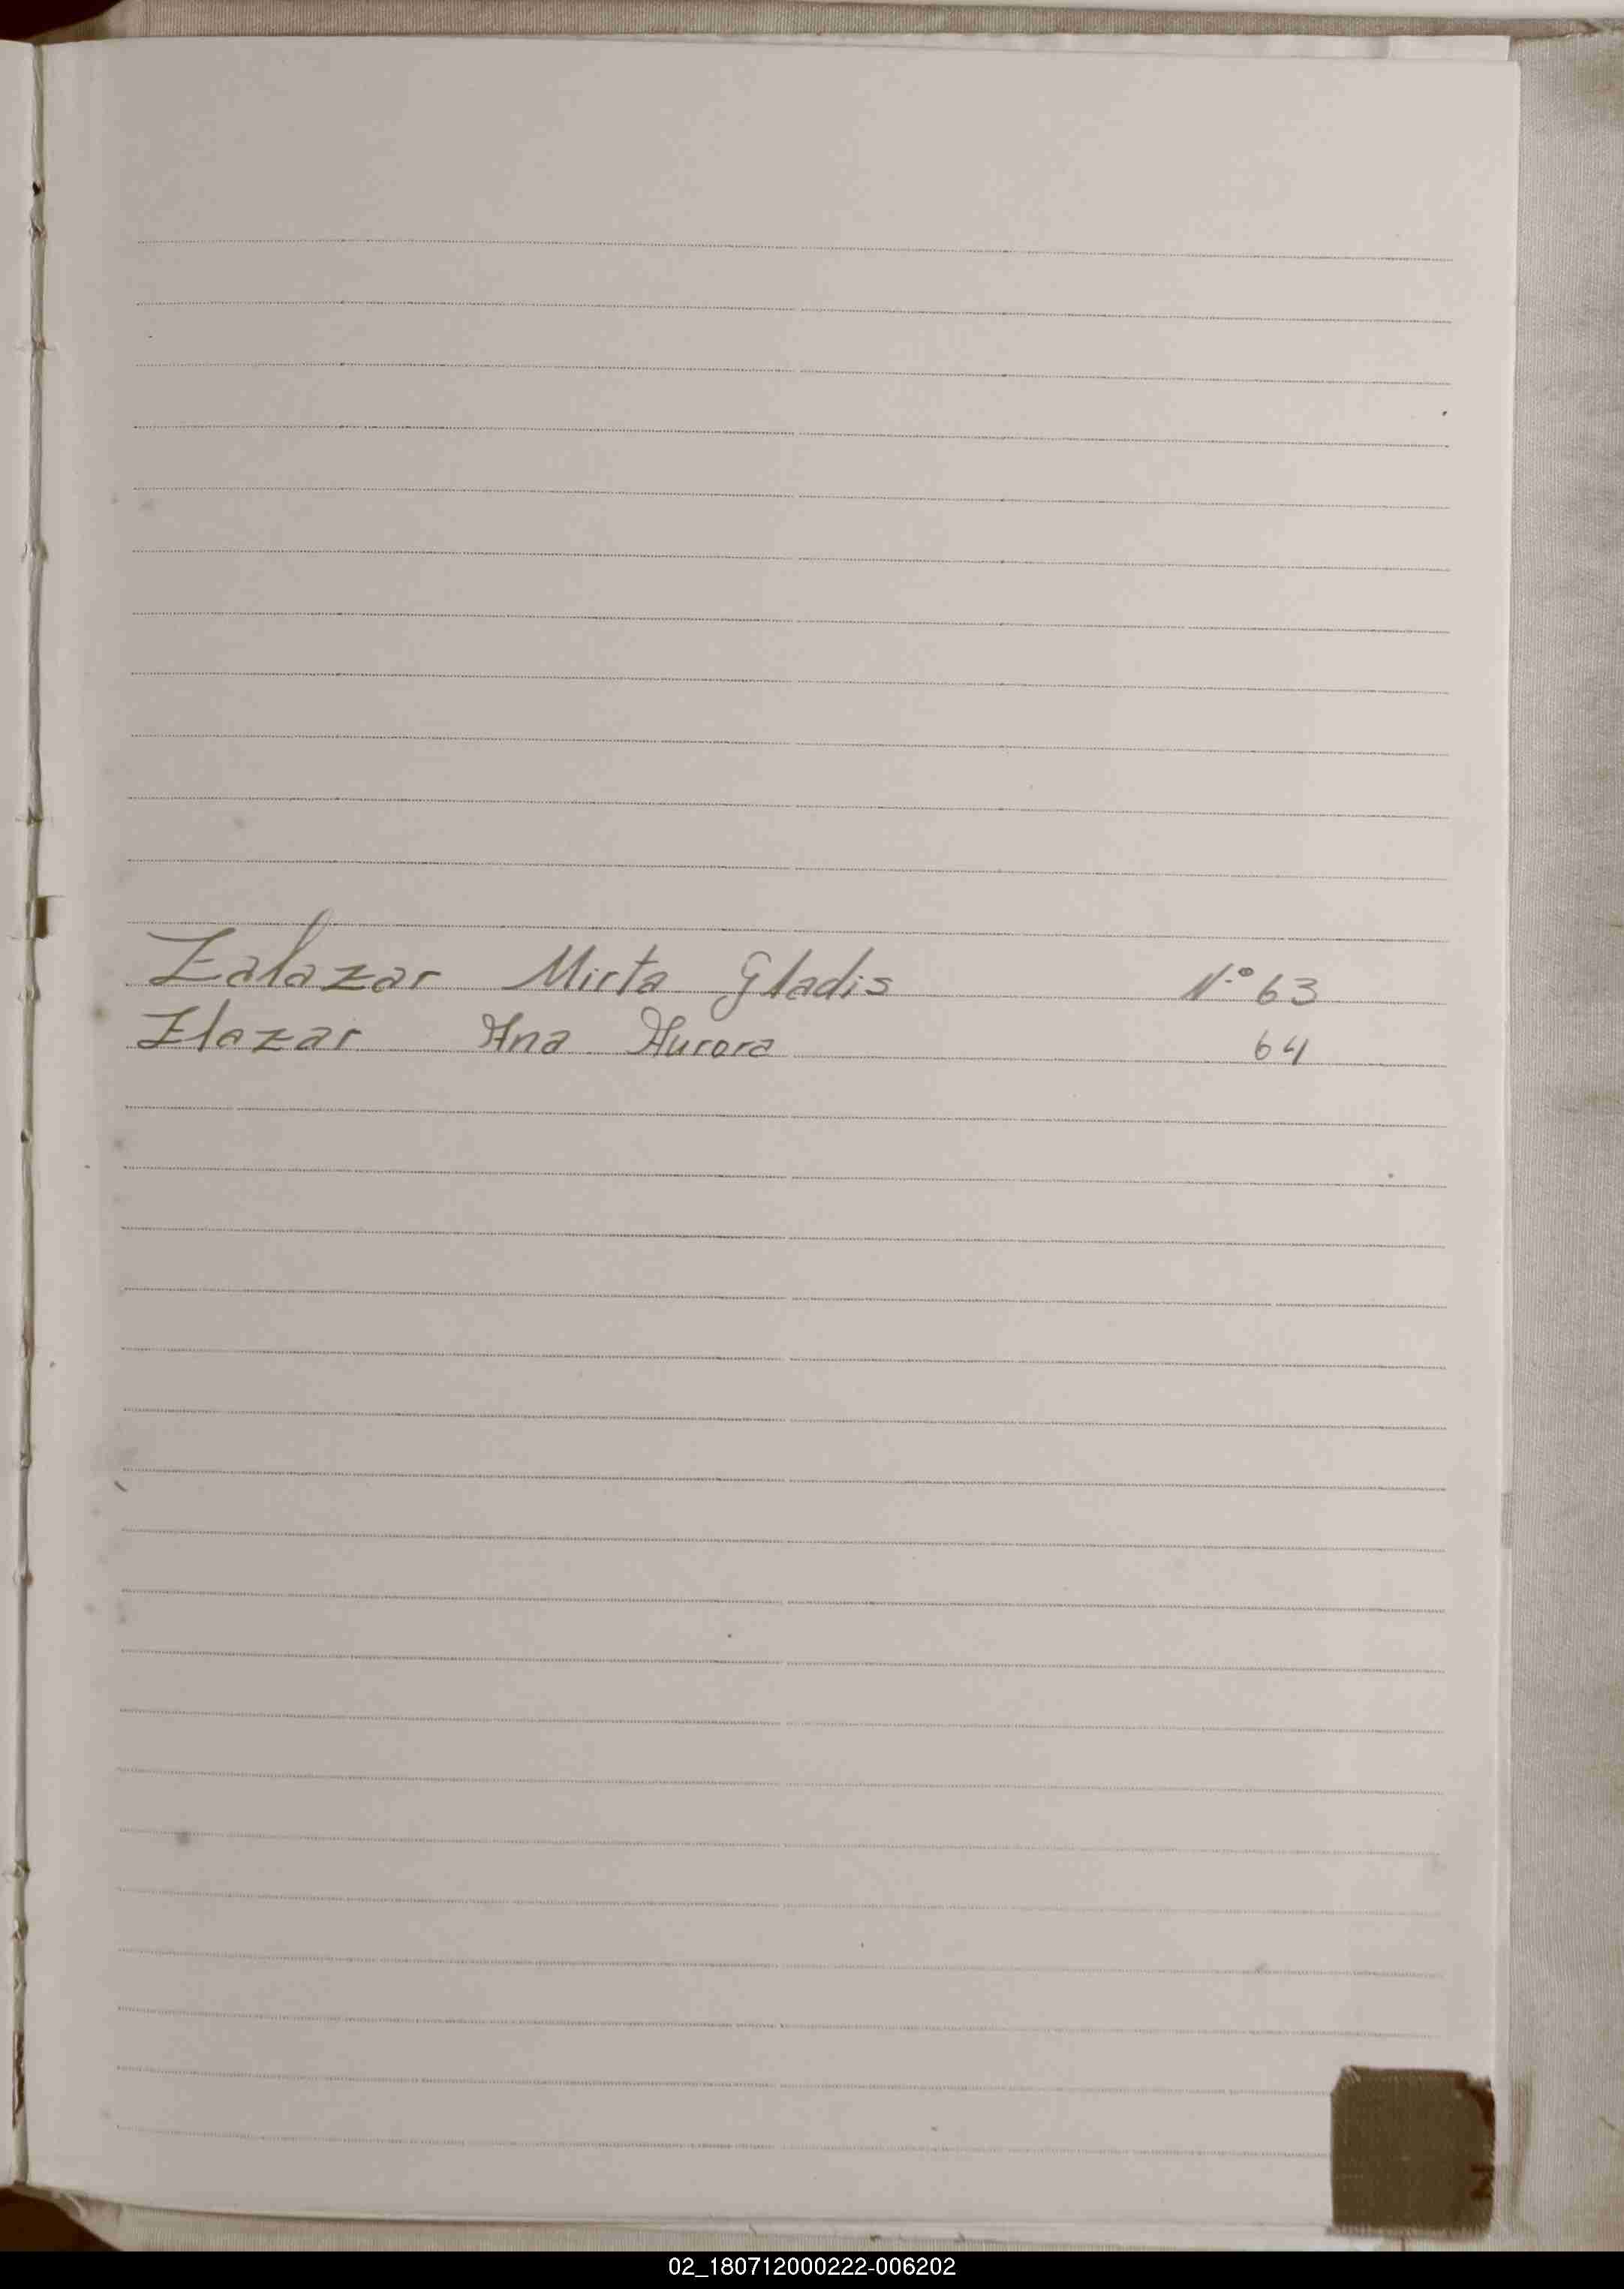 Zalazar Mirta Gladis Nº 63
Zlazar Ana Aurora 64
Z
02_180712000222-006202